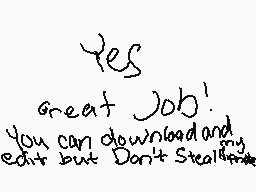 Yes
Great Job!
You can download and
edit but Don't Steal my